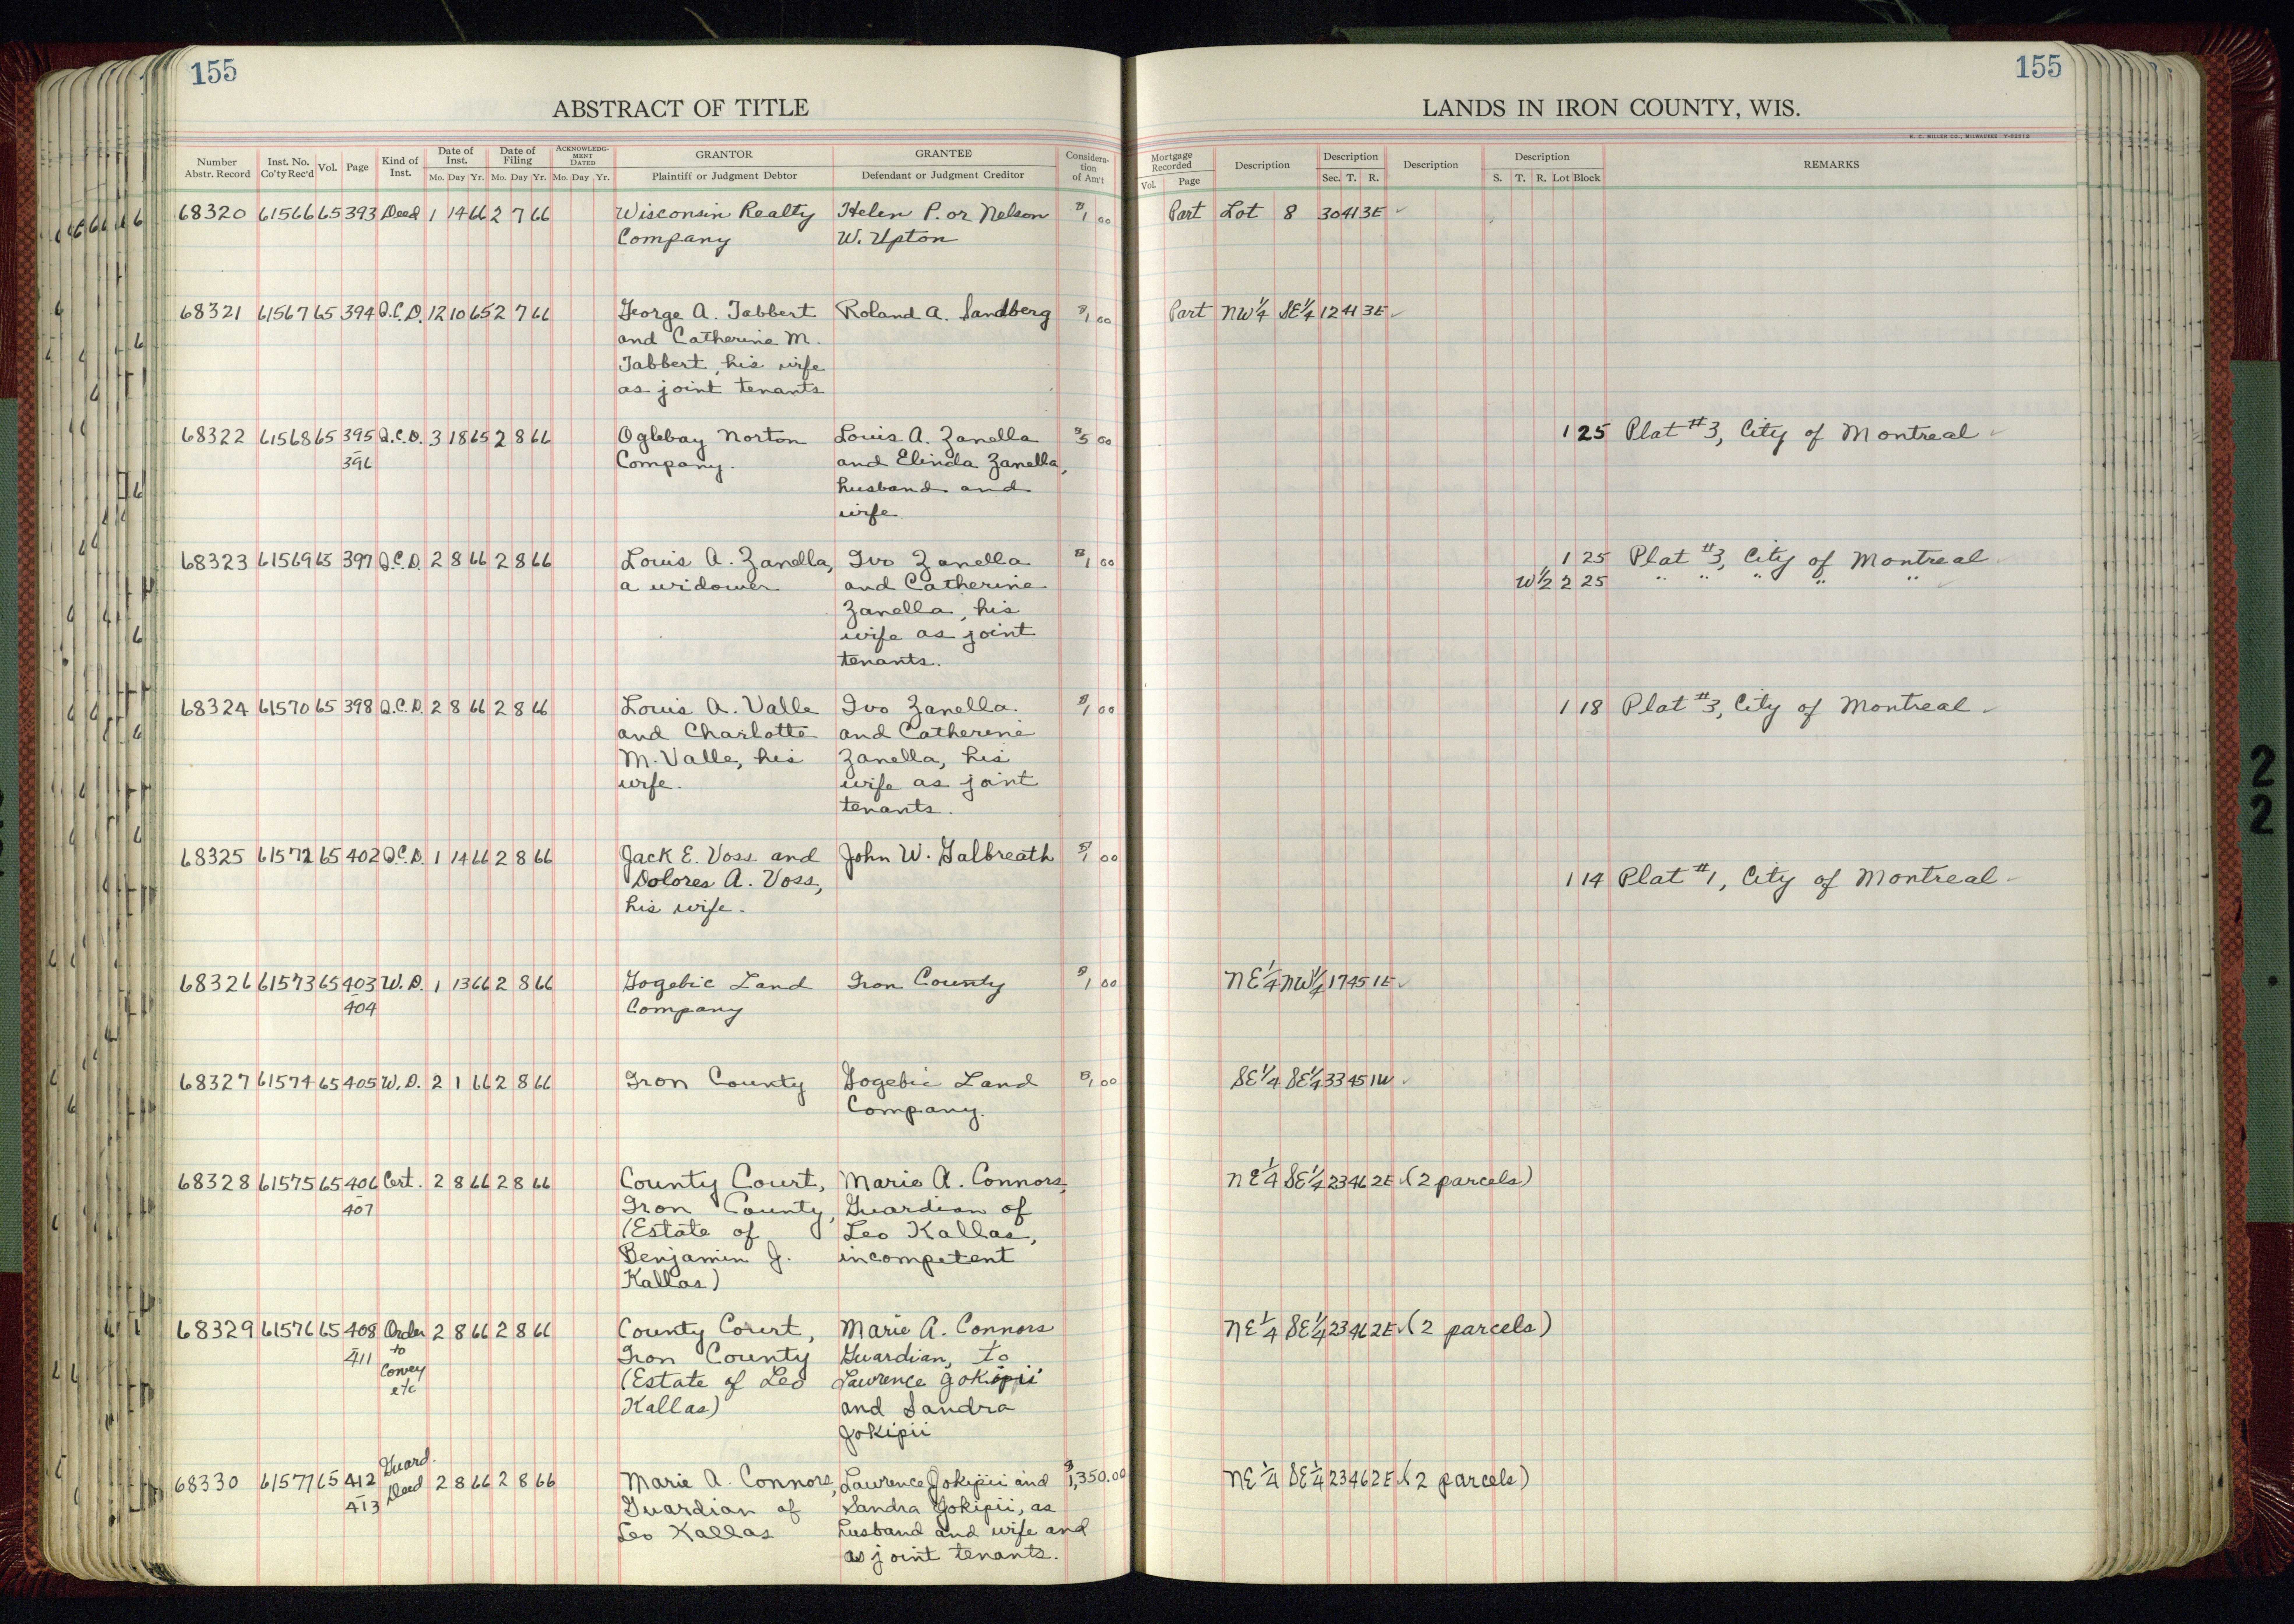 155
155
ABSTRACT OF TITLE
LANDS IN IRON COUNTY, WIS.
H. C. MILLER CO., MILWAUKEE
Number Abstr. Record Inst. No. Co'ty Rec'd Vol. Page Kind of Inst. Date of Inst. Mo. Day Yr. Date of Filing Mo. Day Yr. ACKNOWLEDGMENT DATED Mo. Day Yr. GRANTOR Plaintiff or Judgment Debtor GRANTEE Defendant or Judgment Creditor Consideration of Am't
Mortgage Recorded Vol. Page Description Description Sec. T. R. Description Description S. T. R. Lot Block REMARKS
68320 61566 65 393 Deed 1 14 66 2 7 66 Wisconsin Realty Helen P. or Nelson $1 00 Part Lot 8 30 41 3E ✓
Company W. Upton
68321 61567 65 394 Q.C.D. 12 10 65 2 7 66 George A. Tabbert Roland A. Sandberg $1 00 Part NW 1/4 SE 1/4 12 41 3E ✓
and Catherine M.
Tabbert, his wife
as joint tenants
68322 61568 65 395 Q.C.D. 3 18 65 2 8 66 Oglebay Norton Louis A. Zanella $5 00 1 25 Plat #3, City of Montreal ✓
- 396 Company. and Elinda Zanella,
husband and
wife
68323 61569 65 397 Q.C.D. 2 8 66 2 8 66 Louis A. Zanella, Ivo Zanella $1 00 1 25 Plat #3, City of Montreal
a widower and Catherine W 1/2 2 25 " " " " " ✓
Zanella, his
wife as joint
tenants.
68324 61570 65 398 Q.C.D. 2 8 66 2 8 66 Louis A. Valle Ivo Zanella $1 00 1 18 Plat #3, City of Montreal ✓
and Charlotte and Catherine
M. Valle, his Zanella, his
wife. wife as joint
tenants.
68325 61572 65 402 Q.C.D. 1 14 66 2 8 66 Jack E. Voss and John W. Galbreath $1 00
Dolores A. Voss, 1 14 Plat #1, City of Montreal ✓
his wife.
68326 61573 65 403 W.D. 1 13 66 2 8 66 Gogebic Land Iron County $1 00 NE 1/4 NW 1/4 17 45 1E ✓
- 404 Company
68327 61574 65 405 W.D. 2 1 66 2 8 66 Iron County Gogebic Land $1 00 SE 1/4 SE 1/4 33 45 1W ✓
Company.
68328 61575 65 406 Cert. 2 8 66 2 8 66 County Court, Marie A. Connors, NE 1/4 SE 1/4 23 46 2E ✓ (2 parcels)
- 407 Iron County, Guardian of
(Estate of Leo Kallas,
Benjamin J. incompetent
Kallas)
68329 61576 65 408 Order 2 8 66 2 8 66 County Court, Marie A. Connors NE 1/4 SE 1/4 23 46 2E ✓ (2 parcels)
- 411 to Iron County Guardian, to
Convey (Estate of Leo Lawrence Jokipii
etc Kallas) and Sandra
Jokipii
68330 61577 65 412 Guard. Deed 2 8 66 2 8 66 Marie A. Connors, Lawrence Jokipii and $1,350.00 NE 1/4 SE 1/4 23 46 2E ✓ (2 parcels)
- 413 Guardian of Sandra Jokipii, as
Leo Kallas husband and wife and
as joint tenants.
2
2